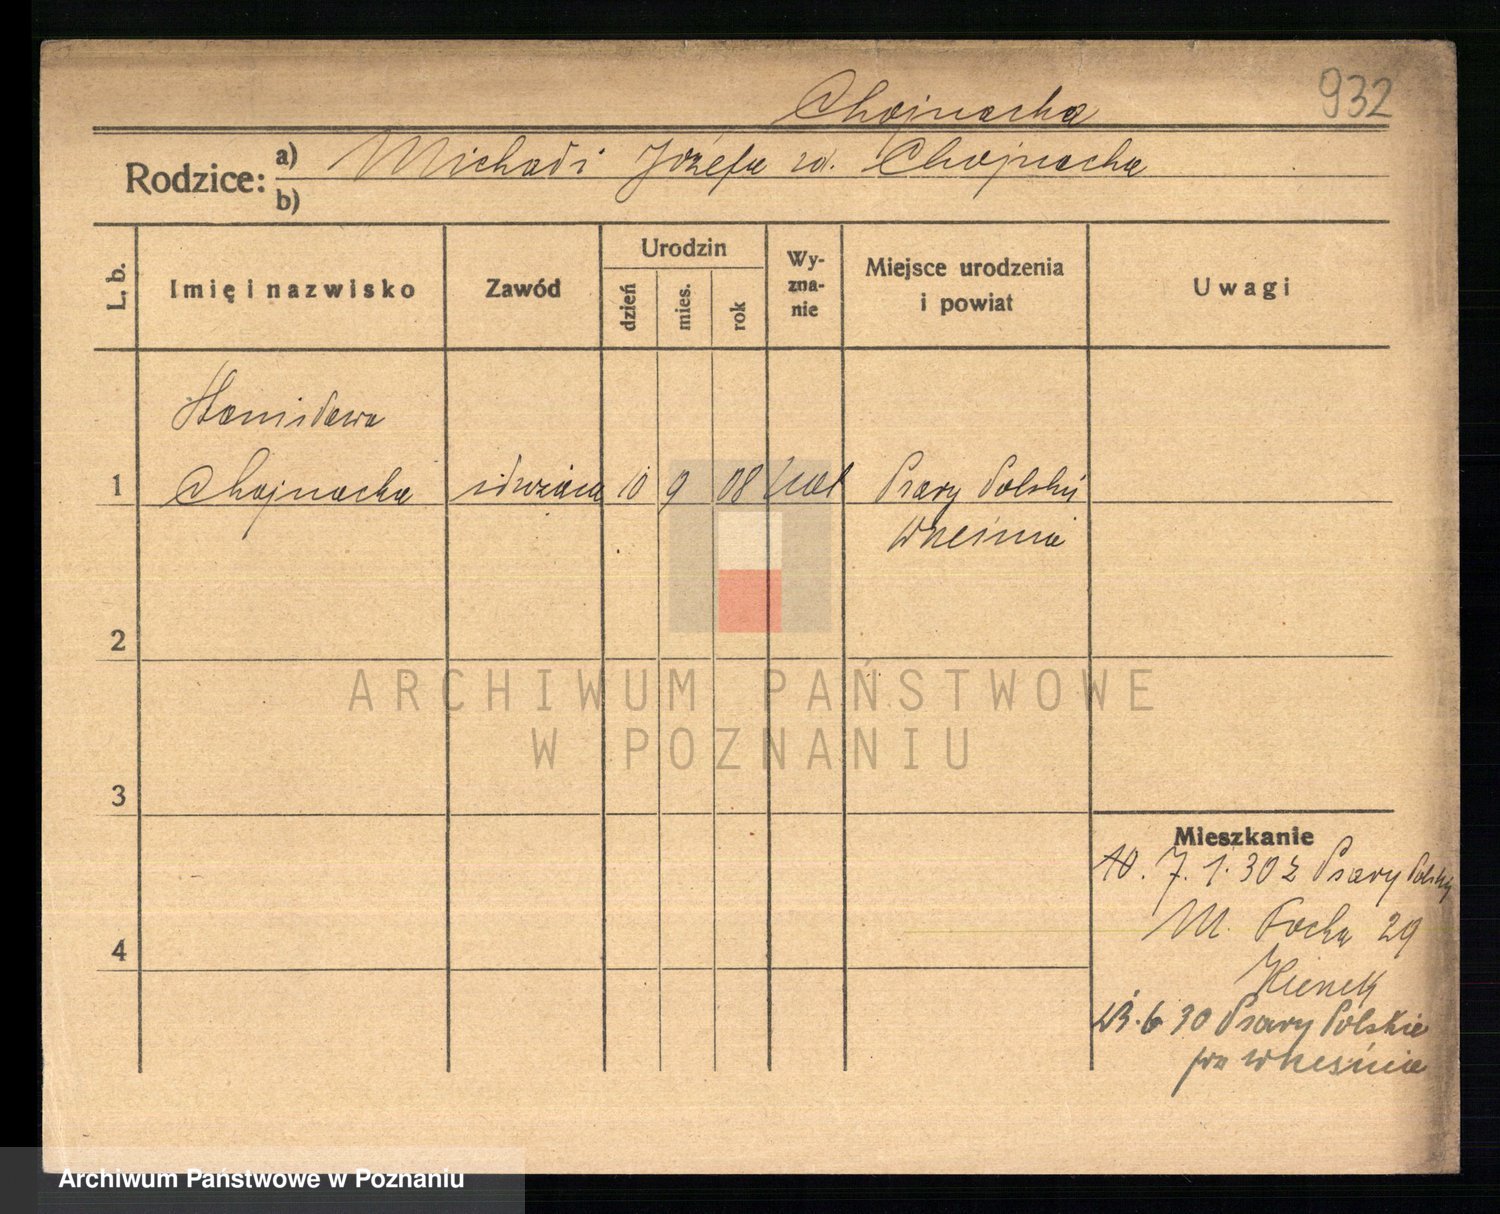 932
Chojnacka
Rodzice: a) Michał i Józefa zd. Chojnacka
b)
L. b. Imię i nazwisko Zawód Urodzin dzień mies. rok Wy-zna-nie Miejsce urodzenia i powiat Uwagi
Stanisława
1 Chojnacka służąca 10 9 08 kat Psary Polskie
Września
2
ARCHIWUM PAŃSTWOWE
W POZNANIU
3
Mieszkanie
10. 7. 1. 30 z Psary Polskie
M. Focha 29
4
23. 6 30 Psary Polskie
pw Września
Archiwum Państwowe w Poznaniu